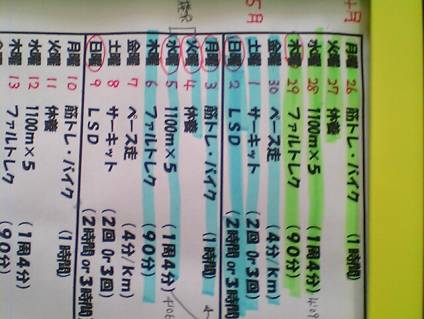 4月
月曜 26 筋トレ・バイク (1時間)
火曜 27 休養
水曜 28 1100m×5 (1周4分)
木曜 29 ファルトレク (90分)
金曜 30 ペース走 (4分/km)
5月
土曜 1 サーキット (2回or3回)
日曜 2 LSD (2時間or3時間)
月曜 3 筋トレ・バイク (1時間)
火曜 4 休養
水曜 5 1100m×5 (1周4分)
木曜 6 ファルトレク (90分)
金曜 7 ペース走 (4分/km)
土曜 8 サーキット (2回or3回)
日曜 9 LSD (2時間or3時間)
月曜 10 筋トレ・バイク (1時間)
火曜 11 休養
水曜 12 1100m×5 (1周4分)
木曜 13 ファルトレク (90分)